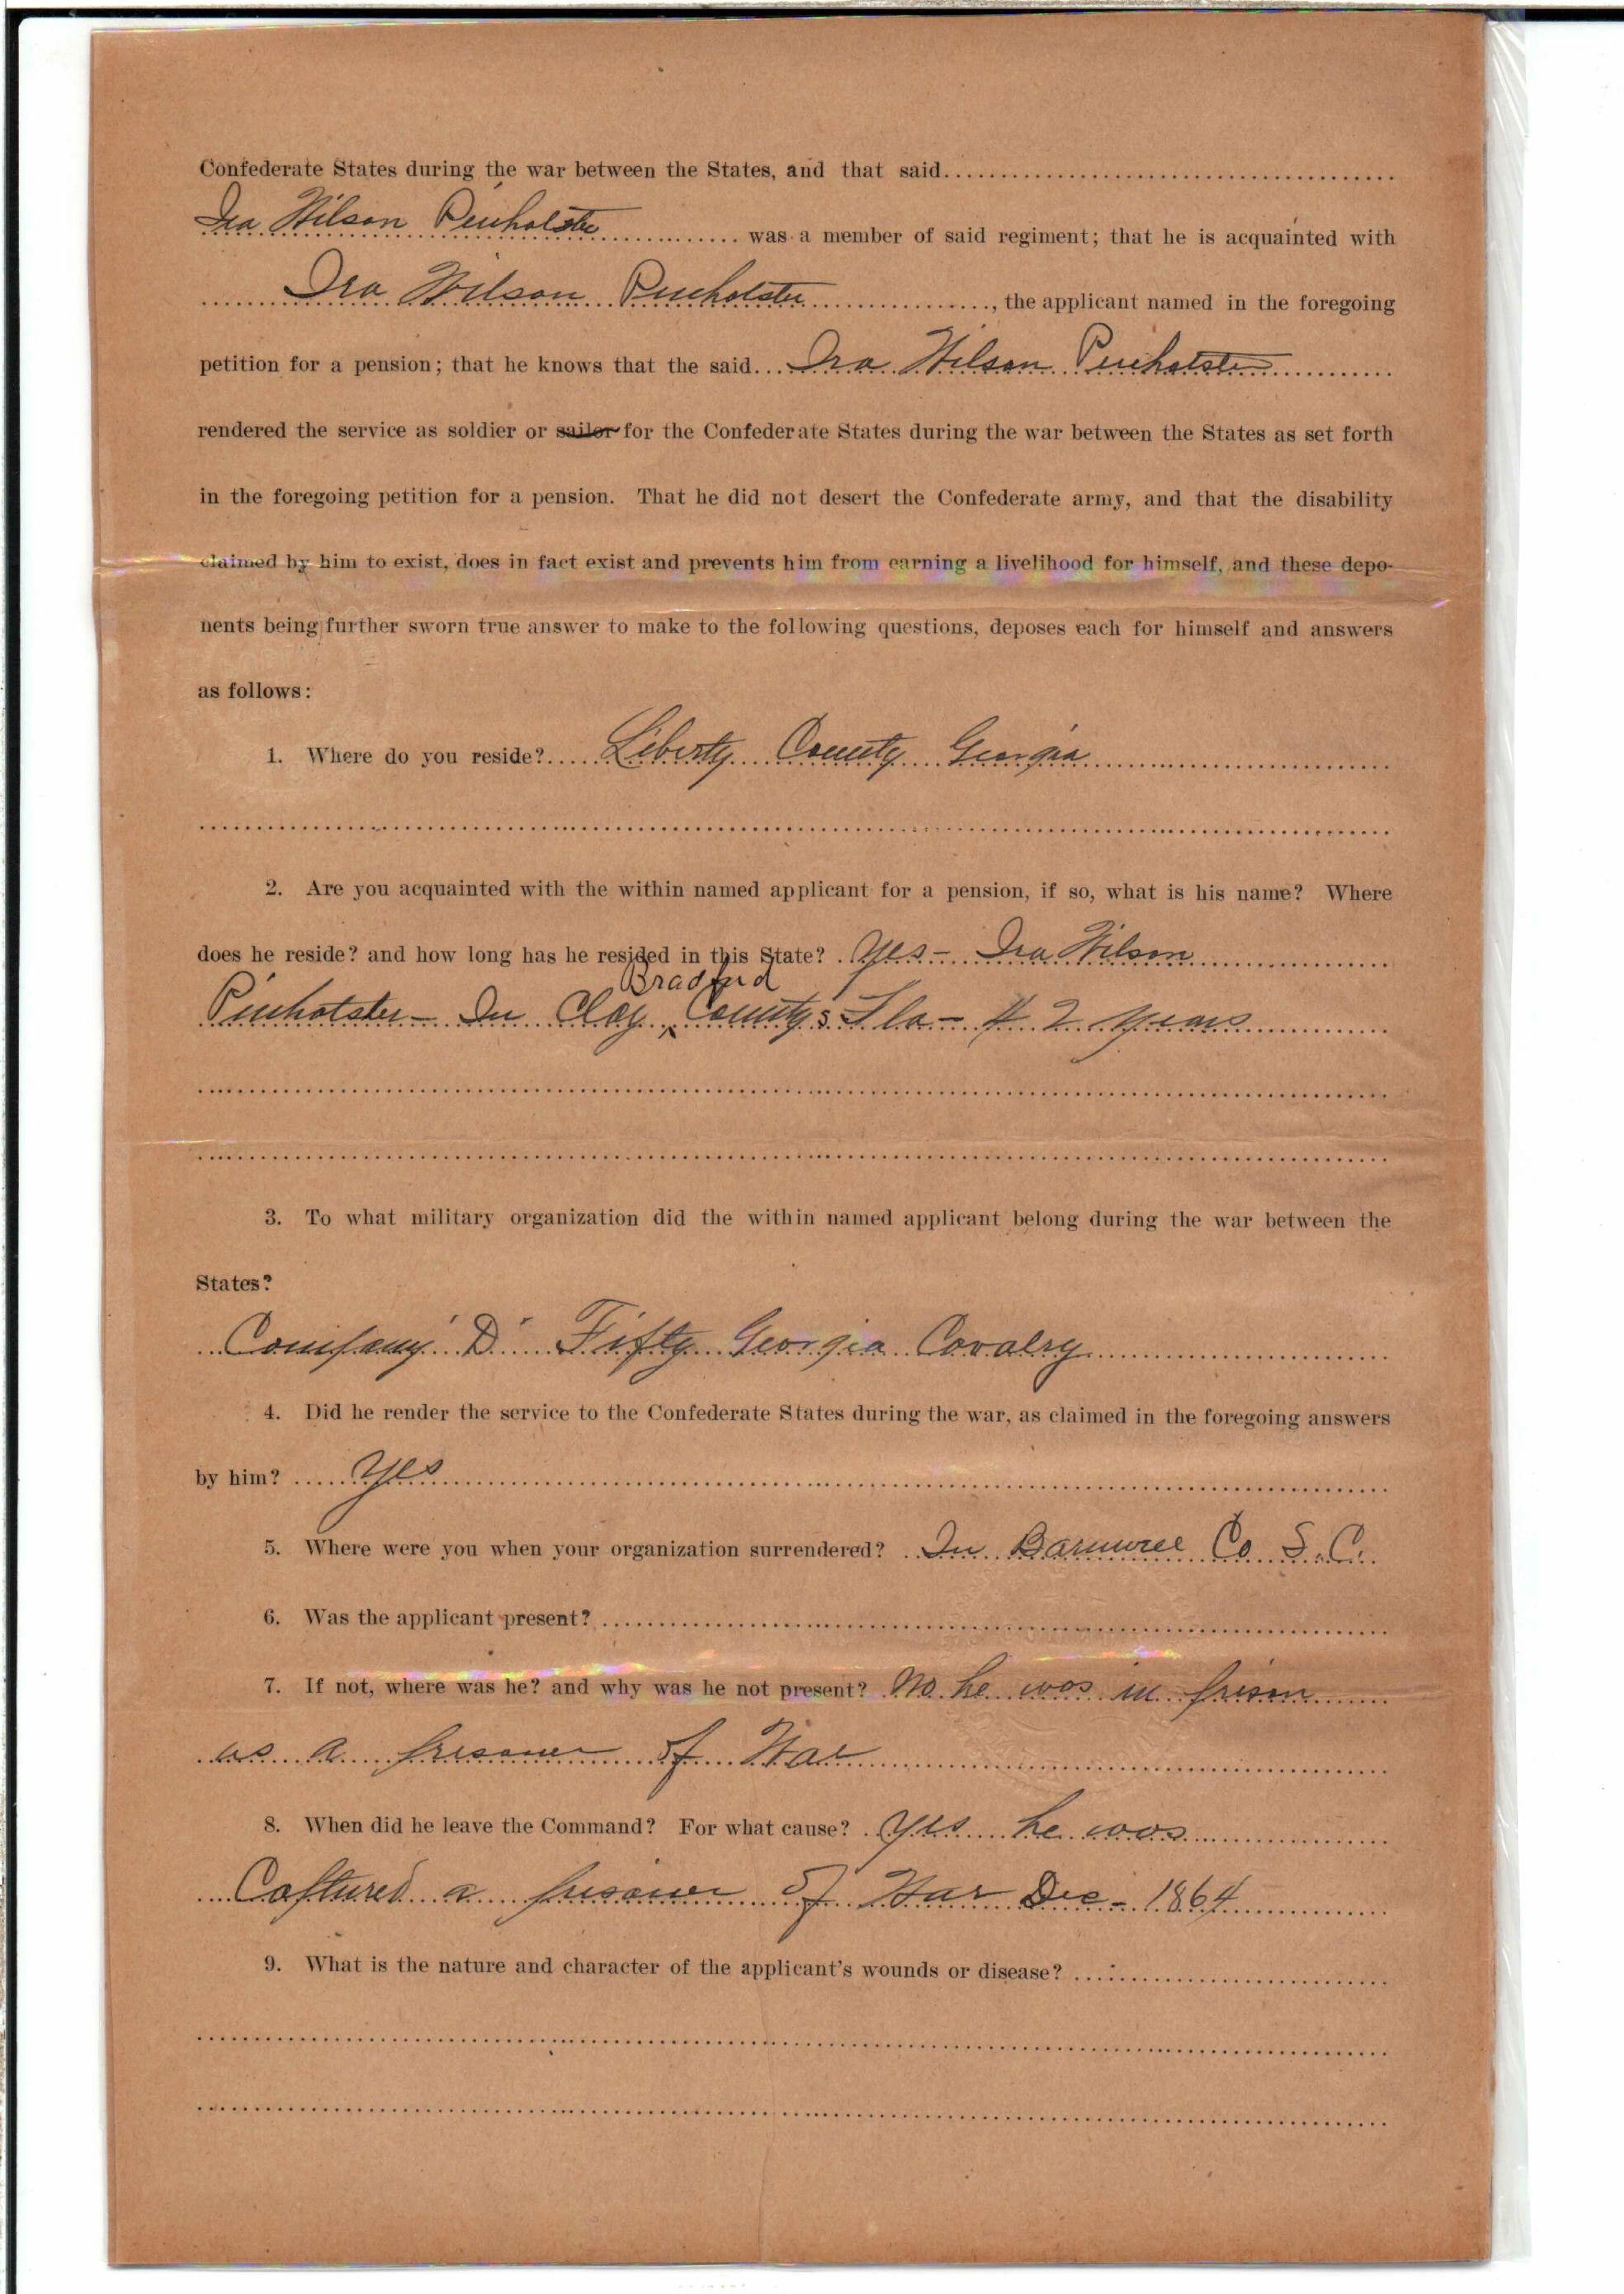 Confederate States during the war between the States, and that said
Ira Wilson Pinholster was a member of said regiment; that he is acquainted with
Ira Wilson Pinholster, the applicant named in the foregoing
petition for a pension; that he knows that the said Ira Wilson Pinholster
rendered the service as soldier or sailor for the Confederate States during the war between the States as set forth
in the foregoing petition for a pension. That he did not desert the Confederate army, and that the disability
claimed by him to exist, does in fact exist and prevents him from earning a livelihood for himself, and these depo-
nents being further sworn true answer to make to the following questions, deposes each for himself and answers
as follows:
1. Where do you reside? Liberty County Georgia
2. Are you acquainted with the within named applicant for a pension, if so, what is his name? Where
does he reside? and how long has he resided in this State? Yes - Ira Wilson
Bradford
Pinholster - In Clay County s Fla - 42 years
3. To what military organization did the within named applicant belong during the war between the
States?
Company D Fifty Georgia Covalry
4. Did he render the service to the Confederate States during the war, as claimed in the foregoing answers
by him? Yes
5. Where were you when your organization surrendered? In Barnwell Co S.C.
6. Was the applicant present?
7. If not, where was he? and why was he not present? No he was in prison
as a prisoner of War
8. When did he leave the Command? For what cause? Yes he was
Captured a prisoner of War Dec - 1864
9. What is the nature and character of the applicant's wounds or disease?